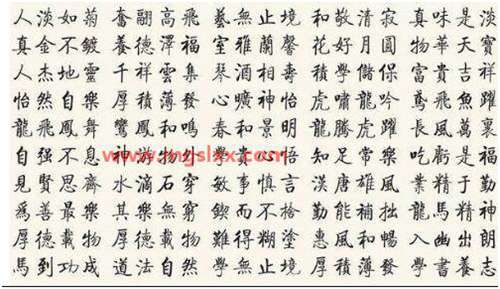 人淡如菊 奮翮高飛 藝無止境 和敬清寂 真味是淡
真金不鍍 養德澤福 室雅蘭馨 花好月圓 物華天寶
人杰地靈 千祥雲集 琴酒相壽 學儲保 富貴吉祥
怡然自樂 厚積薄發 心曠神怡 虎嘯龍吟 鳶飛魚躍
龍飛鳳舞 鸞鳳和鳴 春和景明 龍騰虎躍 長風萬裏
自强不息 神游物外 學貴心悟 知足常樂 吃虧是福
www.mgslxx.com
見賢思齊 水滴石穿 敏事慎言 漢唐雄風 業精于勤
爲善最樂 其樂無窮 鍥而不捨 勤能補拙 龍馬精神
厚德載物 難得糊塗 惠風和暢 入幽出朗
馬到功成 道法自然 學無止境 厚積薄發 學書養志